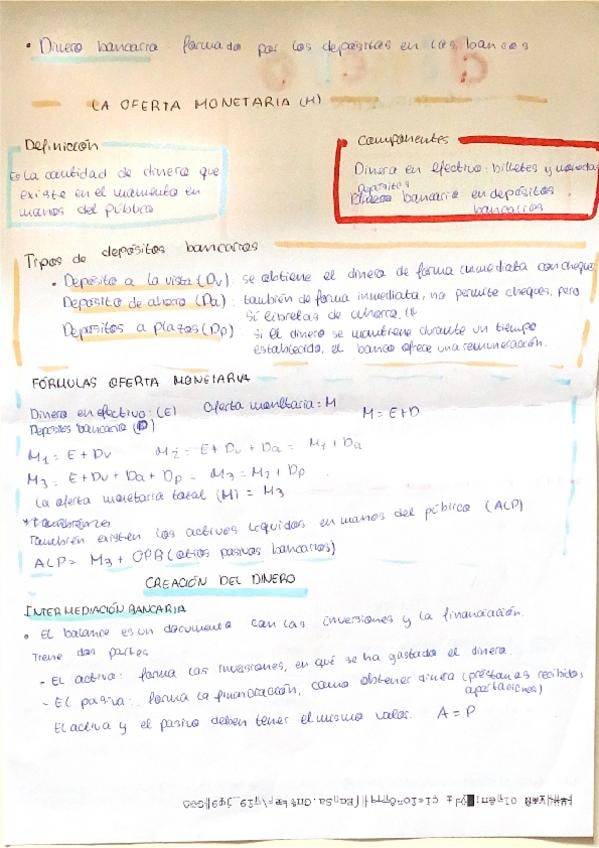 • Dinero bancario: formado por los depósitos en los bancos
LA OFERTA MONETARIA (M)
Definición
Es la cantidad de dinero que
existe en el momento en
manos del público
Componentes
Dinero en efectivo: billetes y monedas
depósitos
Dinero bancario en depósitos
bancarios
Tipos de depósitos bancarios
• Depósito a la vista (Dv): se obtiene el dinero de forma inmediata con cheque
Depósito de ahorro (Da): también de forma inmediata, no permite cheques, pero
sí libretas de ahorro.
Depósitos a plazos (Dp): si el dinero se mantiene durante un tiempo
establecido, el banco ofrece una remuneración.
FÓRMULAS OFERTA MONETARIA
Dinero en efectivo: (E) Oferta monetaria = M M = E + D
Depósitos bancarios (D)
M1 = E + Dv M2 = E + Dv + Da = M1 + Da
M3 = E + Dv + Da + Dp = M3 = M2 + Dp
La oferta monetaria total (M) = M3
También existen los activos líquidos en manos del público (ALP)
ALP = M3 + OPB (otros pasivos bancarios)
CREACIÓN DEL DINERO
INTERMEDIACIÓN BANCARIA
• El balance es un documento con las inversiones y la financiación.
Tiene dos partes
- El activo: forma las inversiones, en qué se ha gastado el dinero.
- El pasivo: forma la financiación, como obtener dinero (préstamos recibidos,
aportaciones)
El activo y el pasivo deben tener el mismo valor. A = P